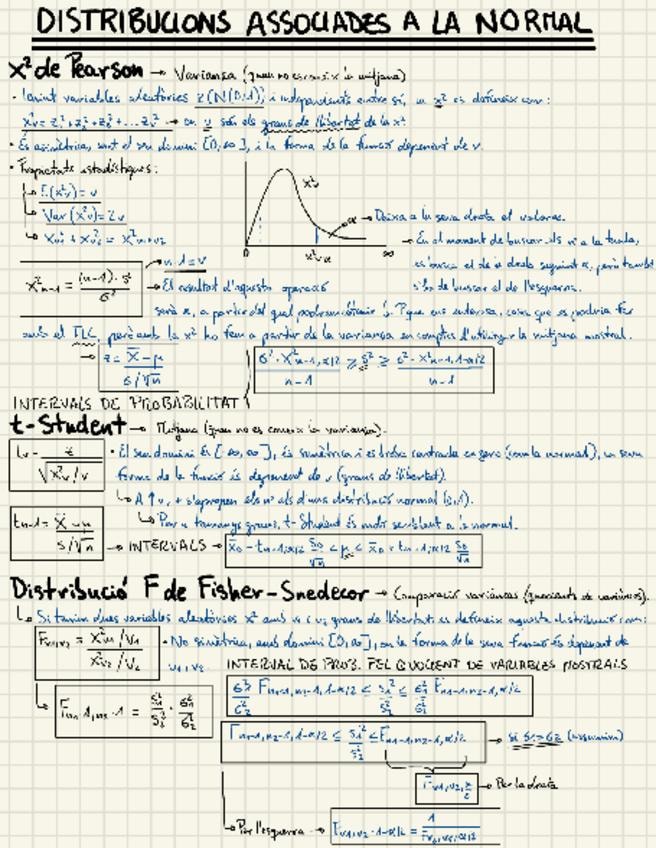 DISTRIBUCIONS ASSOCIADES A LA NORMAL
X² de Pearson → Variança (quan no es coneix la mitjana)
· Tenint variables aleatòries Z(N(0,1)) i independents entre sí, la X² es defineix com:
X²ν = Z₁² + Z₂² + Z₃² + ... Zν² → on ν són els graus de llibertat de la X²
· És asimètrica, sent el seu domini [0,∞], i la forma de la funció depenent de ν.
· Propietats estadístiques:
E(X²ν) = ν
Var(X²ν) = 2ν
X²ν₁ + X²ν₂ = X²ν₁+ν₂
X²ν
α → Deixa a la seva dreta el valor
0 X²ν,α ∞
→ En el moment de buscar els a la taula,
n-1 = ν
X²n-1 = (n-1)·s² / σ²
→ El resultat d'aquesta operació
amb el TLC, però amb la X² ho fem a partir de la variança en comptes d'utilitzar la mitjana mostral.
→ Z = X̄ - μ / σ/√n
σ²·X²n-1,α/2 / n-1 ≥ s² ≥ σ²·X²n-1,1-α/2 / n-1
INTERVALS DE PROBABILITAT
t-Student → Mitjana (quan no es coneix la variança).
tν = Z / √X²ν/ν
· El seu domini és [-∞,∞], és simètrica i es troba centrada en zero (com la normal), la seva
forma de la funció és depenent de ν (graus de llibertat).
↳ A ↑ν, + s'apropen els valors als d'una distribució normal (0,1).
↳ Per a tamanys grans, t-Student és molt semblant a la normal.
tn-1 = X̄ - μ / s/√n
→ INTERVALS → x̄₀ - tn-1,α/2 s₀/√n ≤ μ ≤ x̄₀ + tn-1,α/2 s₀/√n
Distribució F de Fisher-Snedecor → Comparació variances (quocients de variances).
↳ Si tenim dues variables aleatòries X² amb ν₁ i ν₂ graus de llibertat es defineix aquesta distribució com:
Fν₁,ν₂ = X²ν₁/ν₁ / X²ν₂/ν₂
· No simètrica, amb domini [0,∞], on la forma de la seva funció és depenent de
ν₁,ν₂.
INTERVAL DE PROB. PEL QUOCIENT DE VARIABLES MOSTRALS
↳ Fn₁-1,n₂-1 = s₁²/s₂² · σ₂²/σ₁²
σ₁²/σ₂² Fn₁-1,n₂-1,1-α/2 ≤ s₁²/s₂² ≤ σ₁²/σ₂² Fn₁-1,n₂-1,α/2
Fn₁-1,n₂-1,1-α/2 ≤ s₁²/s₂² ≤ Fn₁-1,n₂-1,α/2 → si σ₁=σ₂ (assumim)
Fν₁,ν₂,α/2 → Per la dreta
↳ Per l'esquerra → Fν₁,ν₂,1-α/2 = 1 / Fν₂,ν₁,α/2